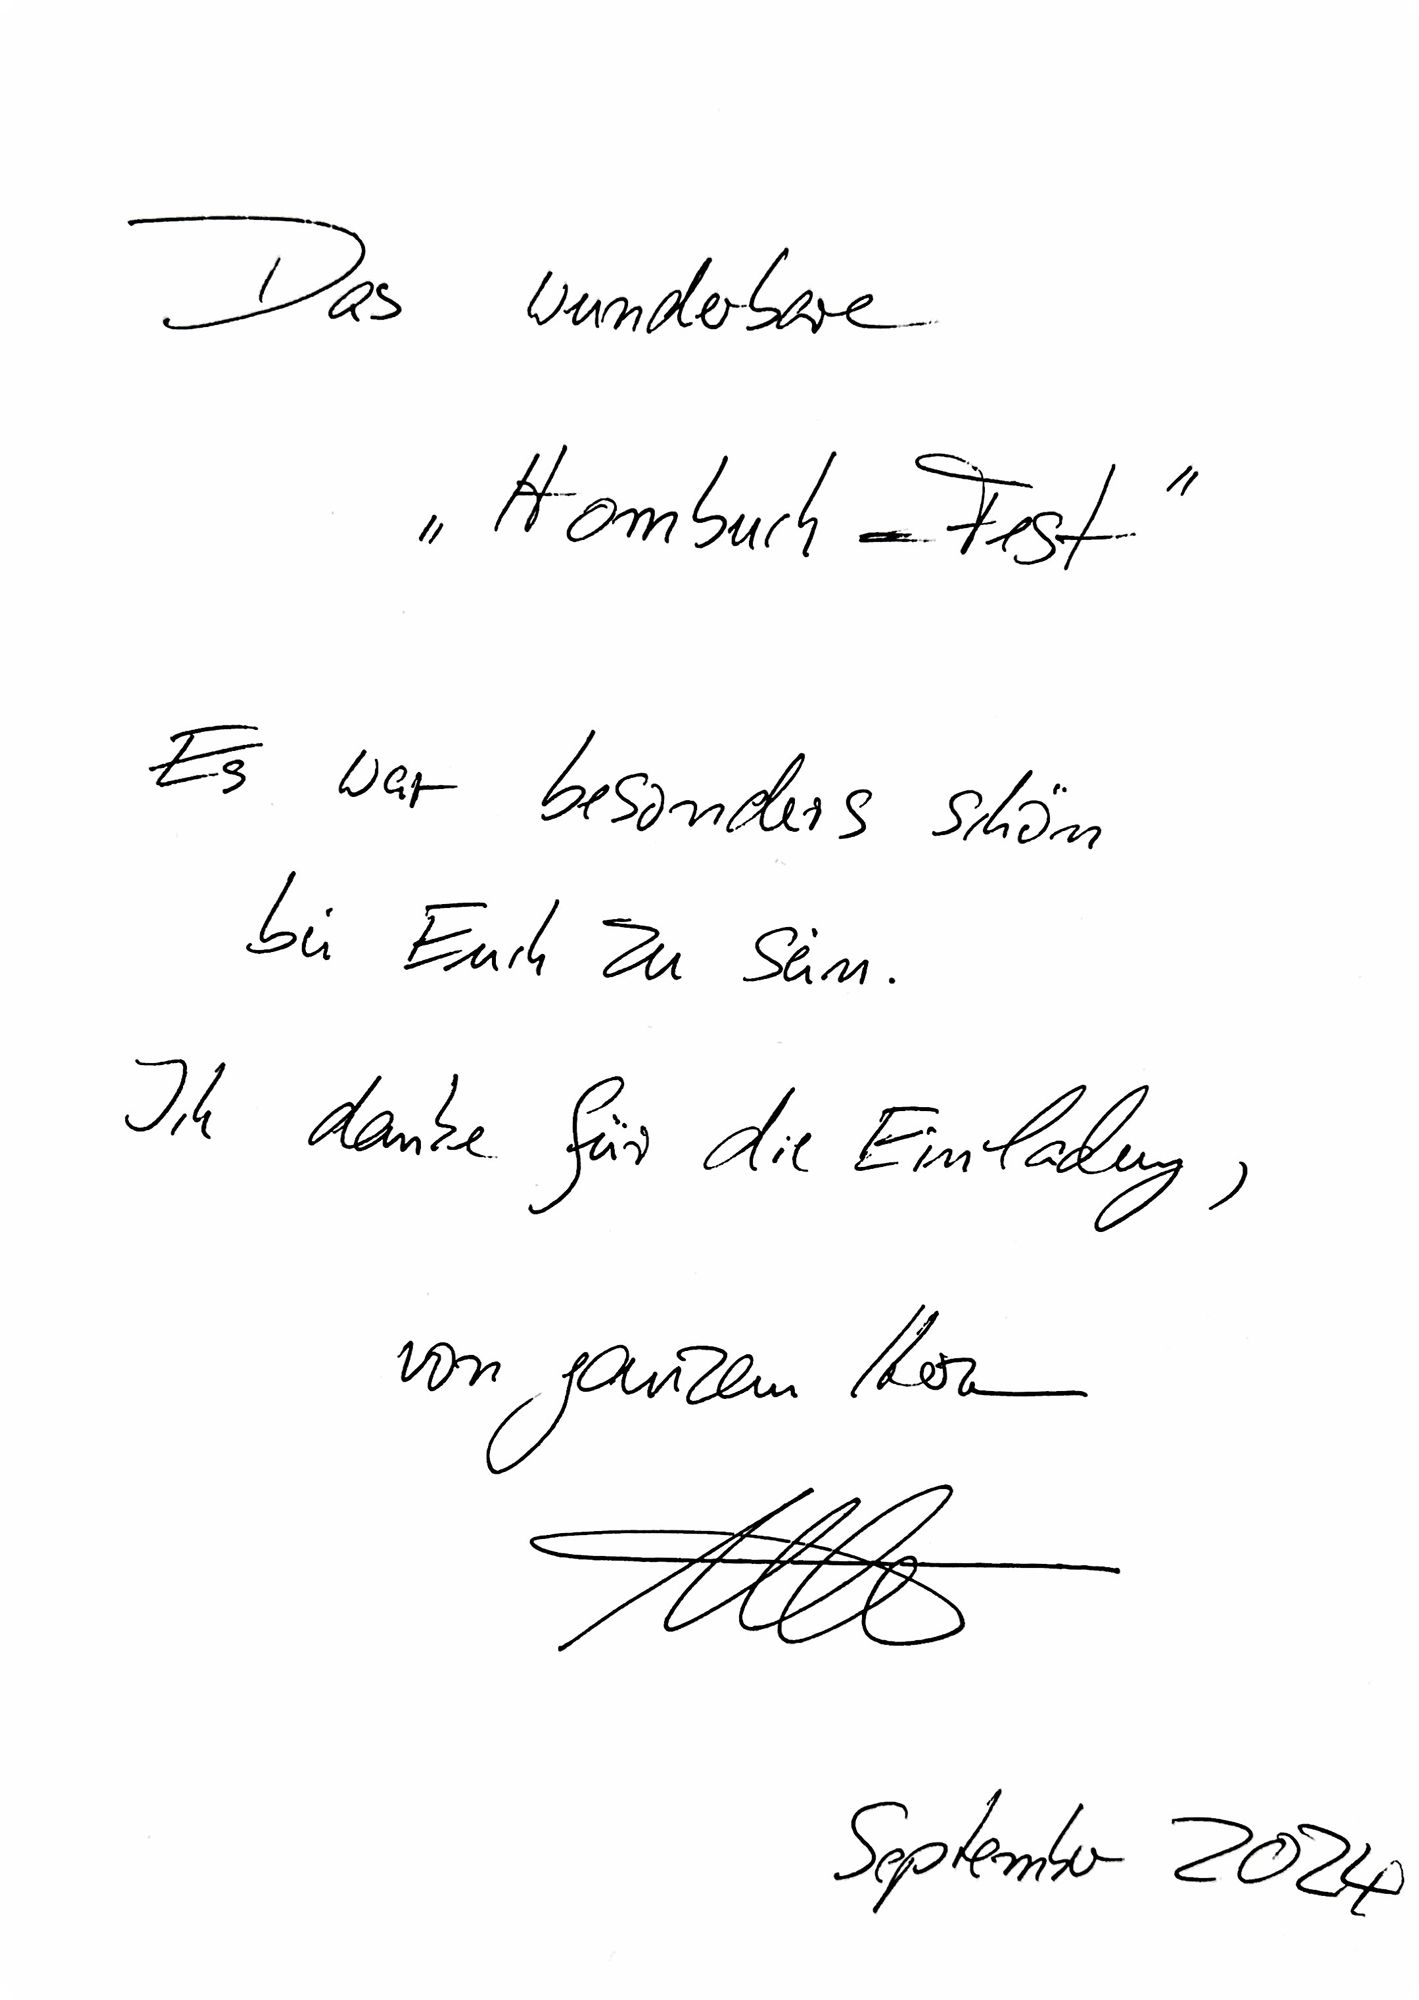 Das wunderbare
„Hombuch-Fest"
Es war besonders schön
bei Euch zu sein.
Ich danke für die Einladung,
von ganzem Herzen
September 2024